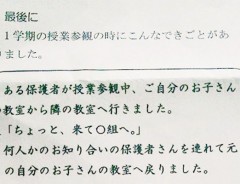 最後に
1学期の授業参観の時にこんなできごとがあ
りました。
ある保護者が授業参観中、ご自分のお子さん
の教室から隣の教室へ行きました。
「ちょっと、来て〇組へ。」
何人かのお知り合いの保護者さんを連れて元
の自分のお子さんの教室へ戻りました。